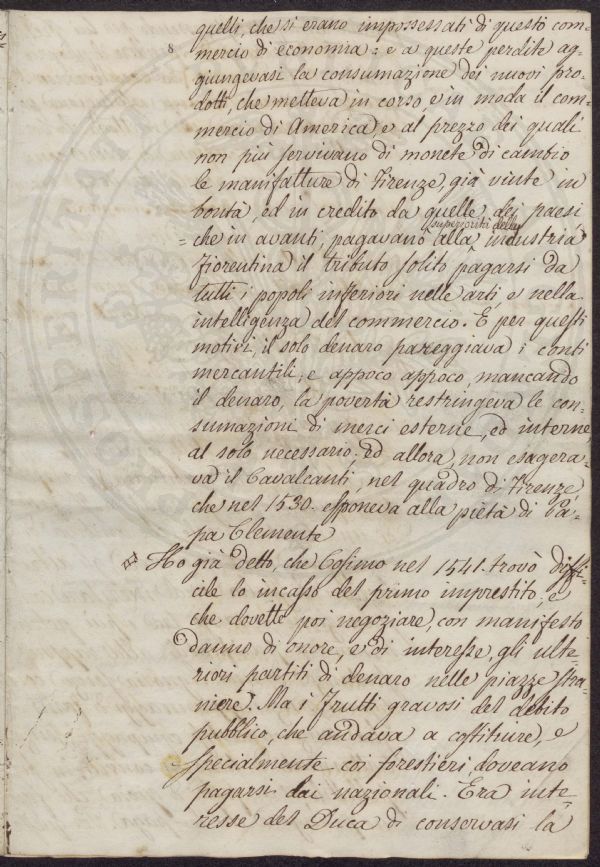 quelli, che si erano impossessati di questo com=
8 mercio di economia: e a queste perdite ag=
giungevasi la consumazione dei nuovi pro=
dotti, che metteva in corso e in moda il com=
mercio di America, e al prezzo dei quali
non più servivano di monete di cambio
le manifatture di Firenze, già vinte in
bontà, ed in credito da quelle dei paesi
superiorità della
= che in avanti, pagavano alla industria =
fiorentina il tributo solito pagarsi da
tutti i popoli inferiori nelle arti, e nella
intelligenza del commercio. E per questi
motivi, il solo denaro pareggiava i conti
mercantili; e appoco appoco, mancando
il denaro, la povertà restringeva le con=
sumazioni di merci esterne, ed interne
al solo necessario. Ed allora, non esagera=
va il Cavalcanti, nel quadro di Firenze,
che nel 1530. esponeva alla pietà di Pa=
pa Clemente
Ho già detto, che Cosimo nel 1541. trovò diffi=
cile lo incasso del primo imprestito; e
che dovette poi negoziare, con manifesto
danno di onore, e di interesse, gli ulte=
riori partiti di denaro nelle piazze stra=
niere. Ma i frutti gravosi del debito
pubblico, che andava a costituire, e
specialmente coi forestieri, doveano
pagarsi dai nazionali. Era inte=
resse del Duca di conservasi la
PROSPERITAT